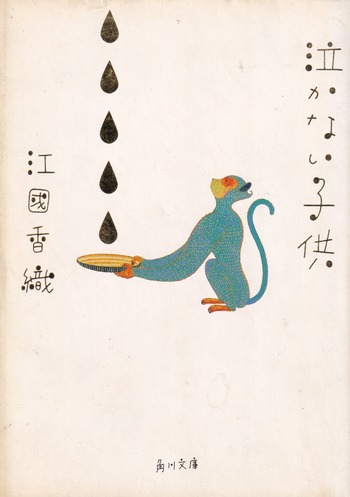 泣かない子供
江國香織
角川文庫